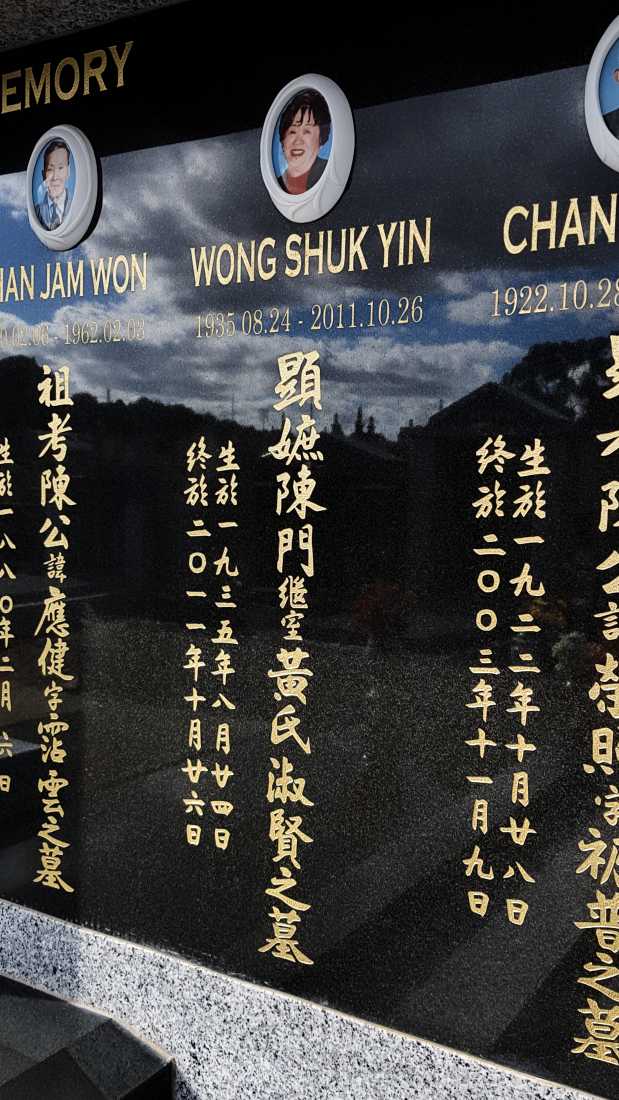 EMORY
HAN JAM WON
0.02.06 - 1962.02.03
祖考陳公諱應健字霑雲之墓
生於一八八〇年二月六日
WONG SHUK YIN
1935 08.24 - 2011.10.26
顯嫲陳門繼室黃氏淑賢之墓
生於一九三五年八月廿四日
終於二〇一一年十月廿六日
CHAN
1922.10.28
陳公諱榮照字 普之墓
生於一九二二年十月廿八日
終於二〇〇三年十一月九日